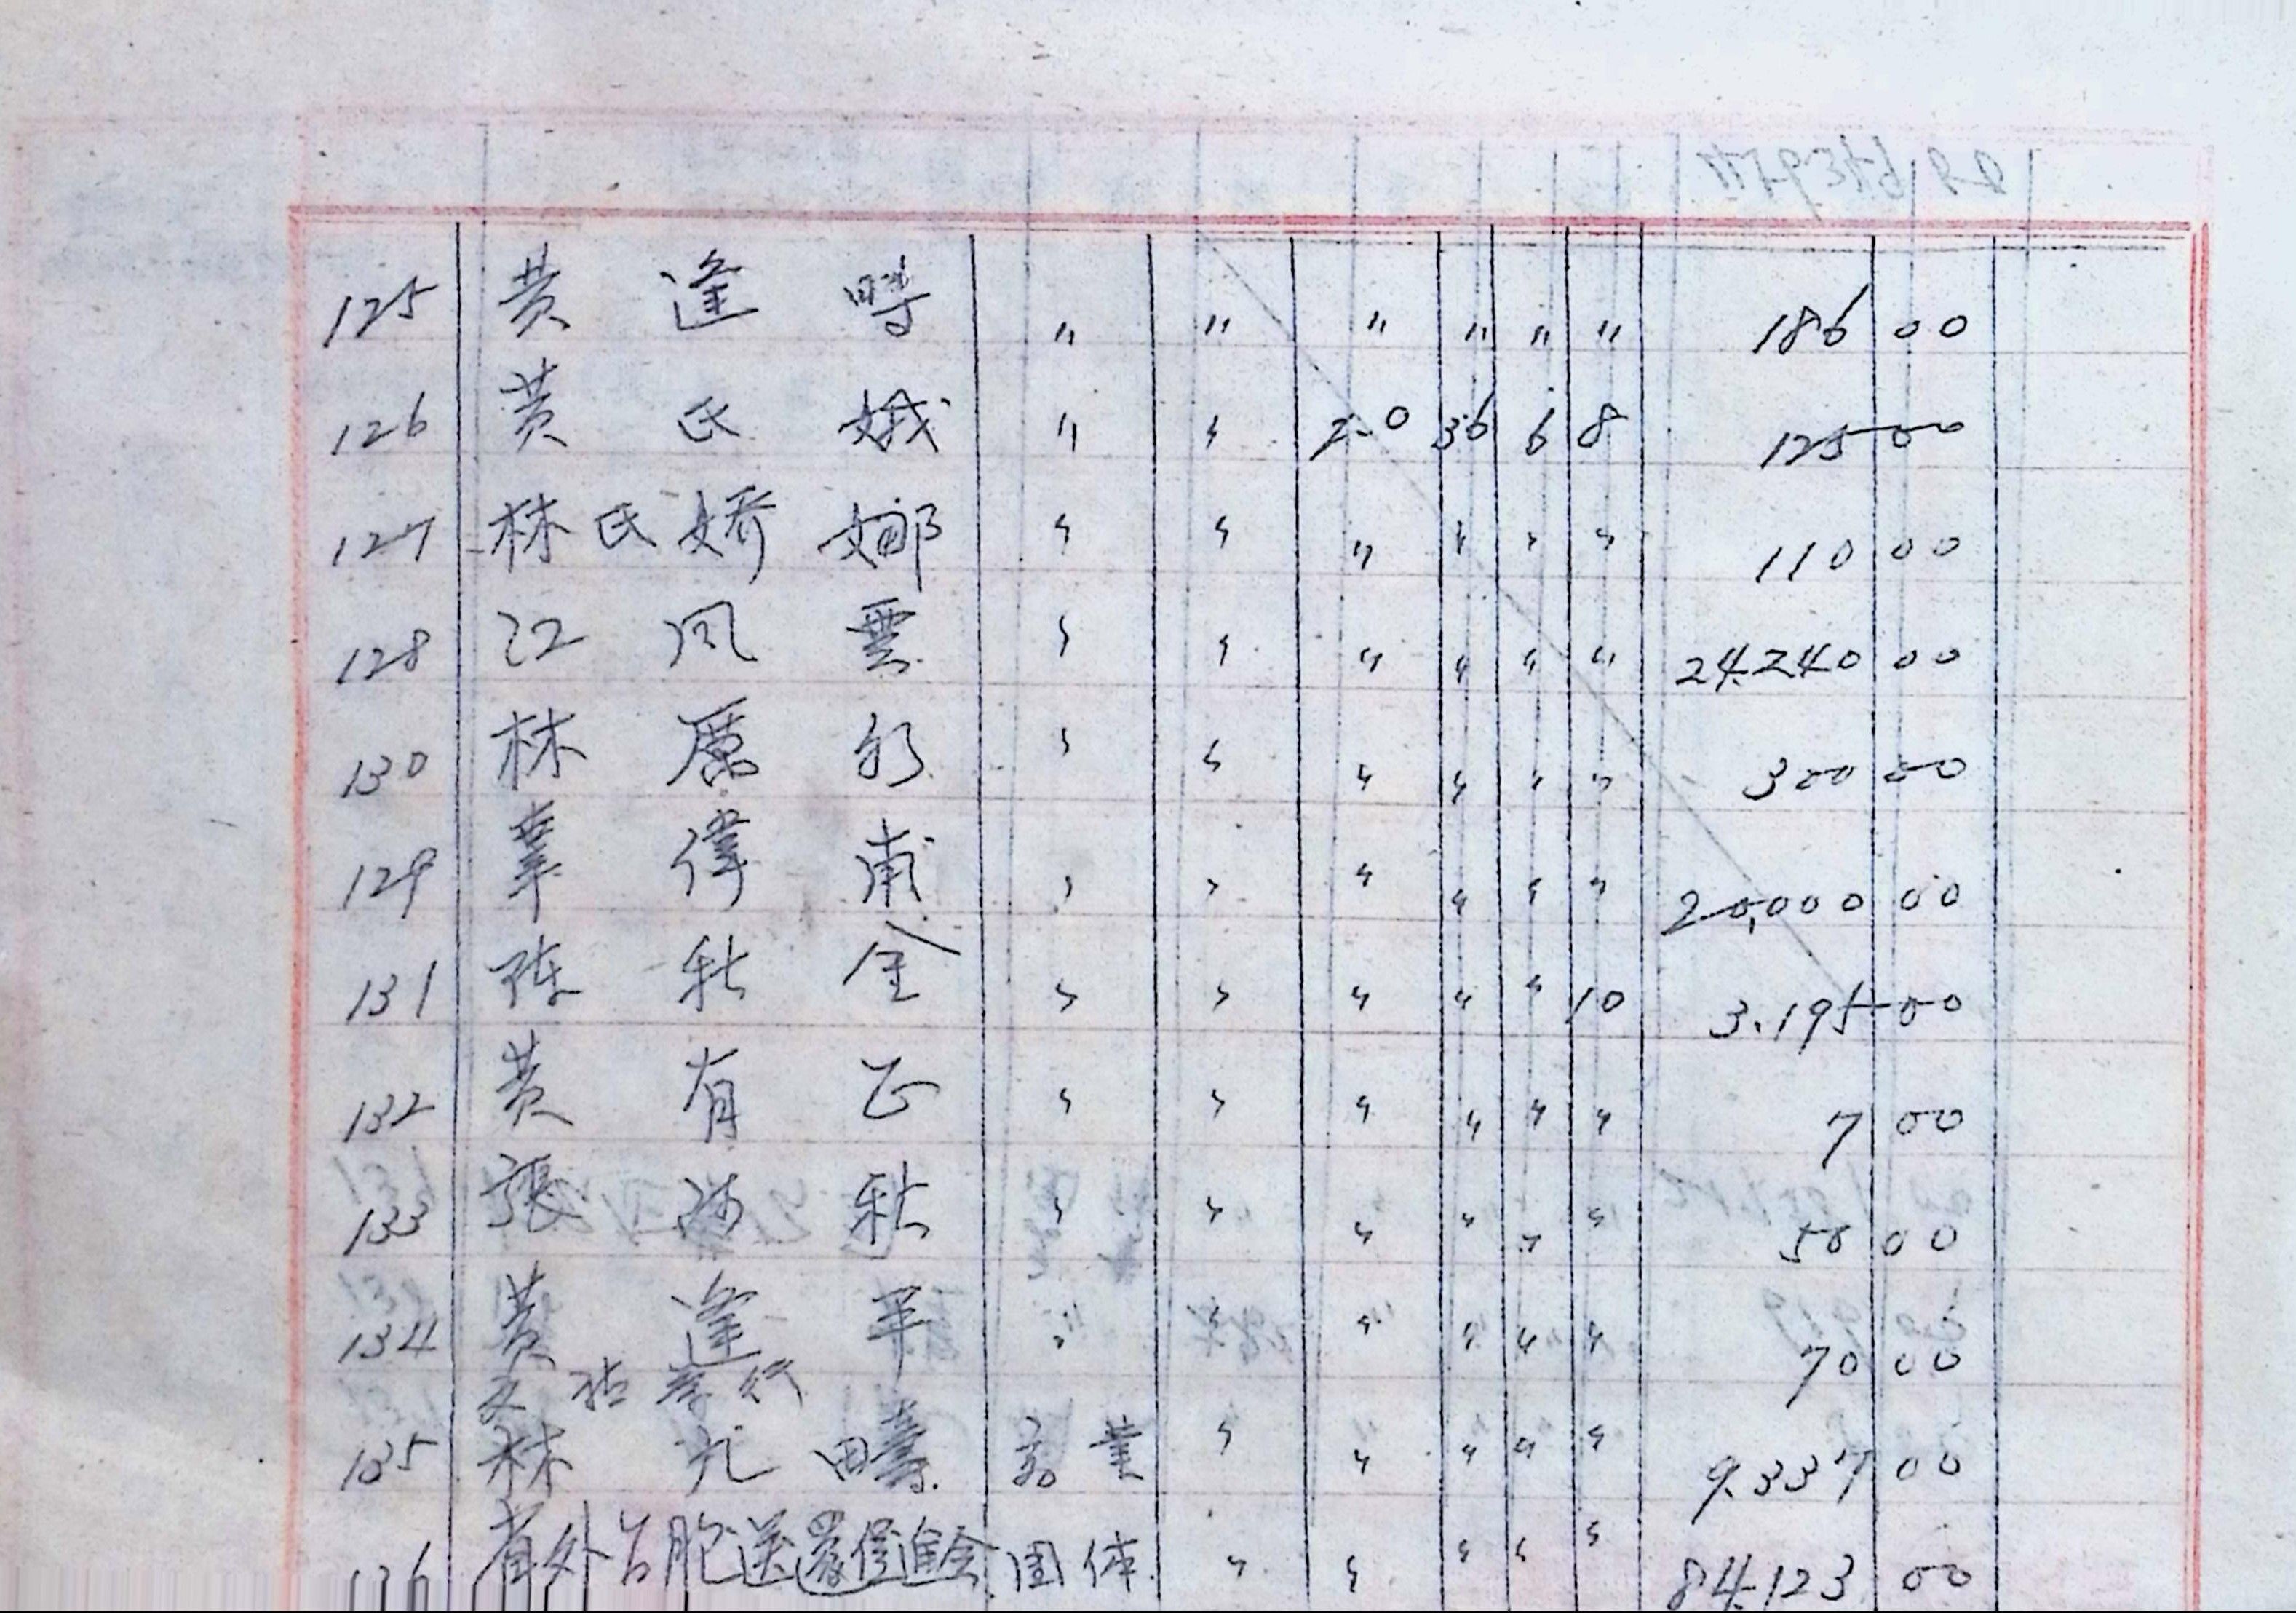 125 黄逢時 〃 〃 〃 〃 〃 〃 186 00
126 黄氏娥 〃 〃 20 36 6 8 125 00
127 林氏娇娜 〃 〃 〃 〃 〃 〃 110 00
128 江风云 〃 〃 〃 〃 〃 〃 24.240 00
130 林 〃 〃 〃 〃 〃 〃 300 00
129 偉甫 〃 〃 〃 〃 〃 〃 20,000 00
131 陈秋金 〃 〃 〃 〃 〃 10 3.195 00
132 黄有正 〃 〃 〃 〃 〃 〃 7 00
133 張 秋 〃 〃 〃 〃 〃 〃 50 00
134 黄逢平 〃 〃 〃 〃 〃 〃 70 00
135 林 疇 業 〃 〃 〃 〃 〃 9.337 00
136 省外台胞送還促進会 团体 〃 〃 〃 〃 〃 84.123 00